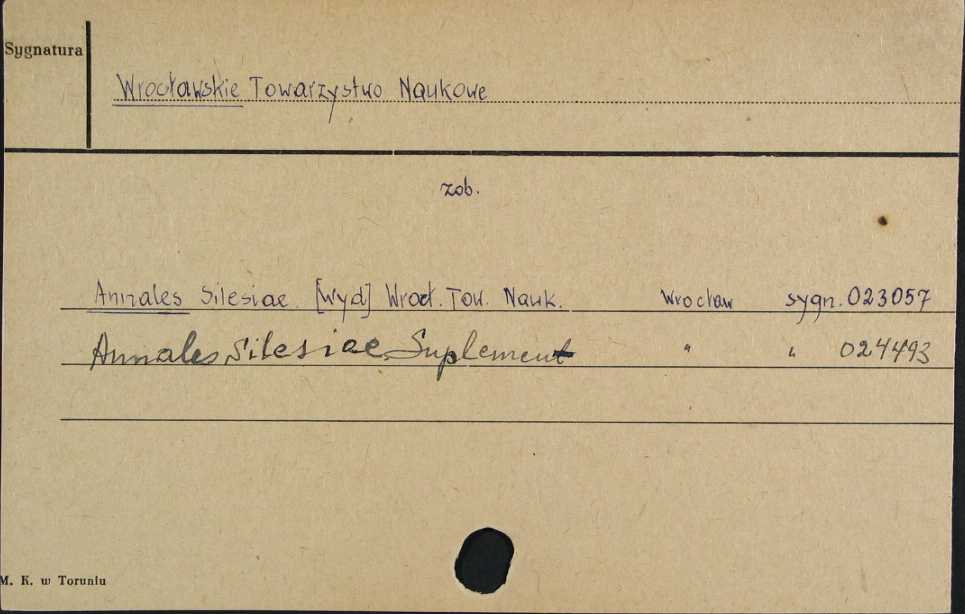 Sygnatura
Wrocławskie Towarzystwo Naukowe
zob.
Annales Silesiae. [wyd] Wrocł. Tow. Nauk. Wrocław sygn. 023057
Annales Silesiae Suplement " " 024493
M. K. w Toruniu